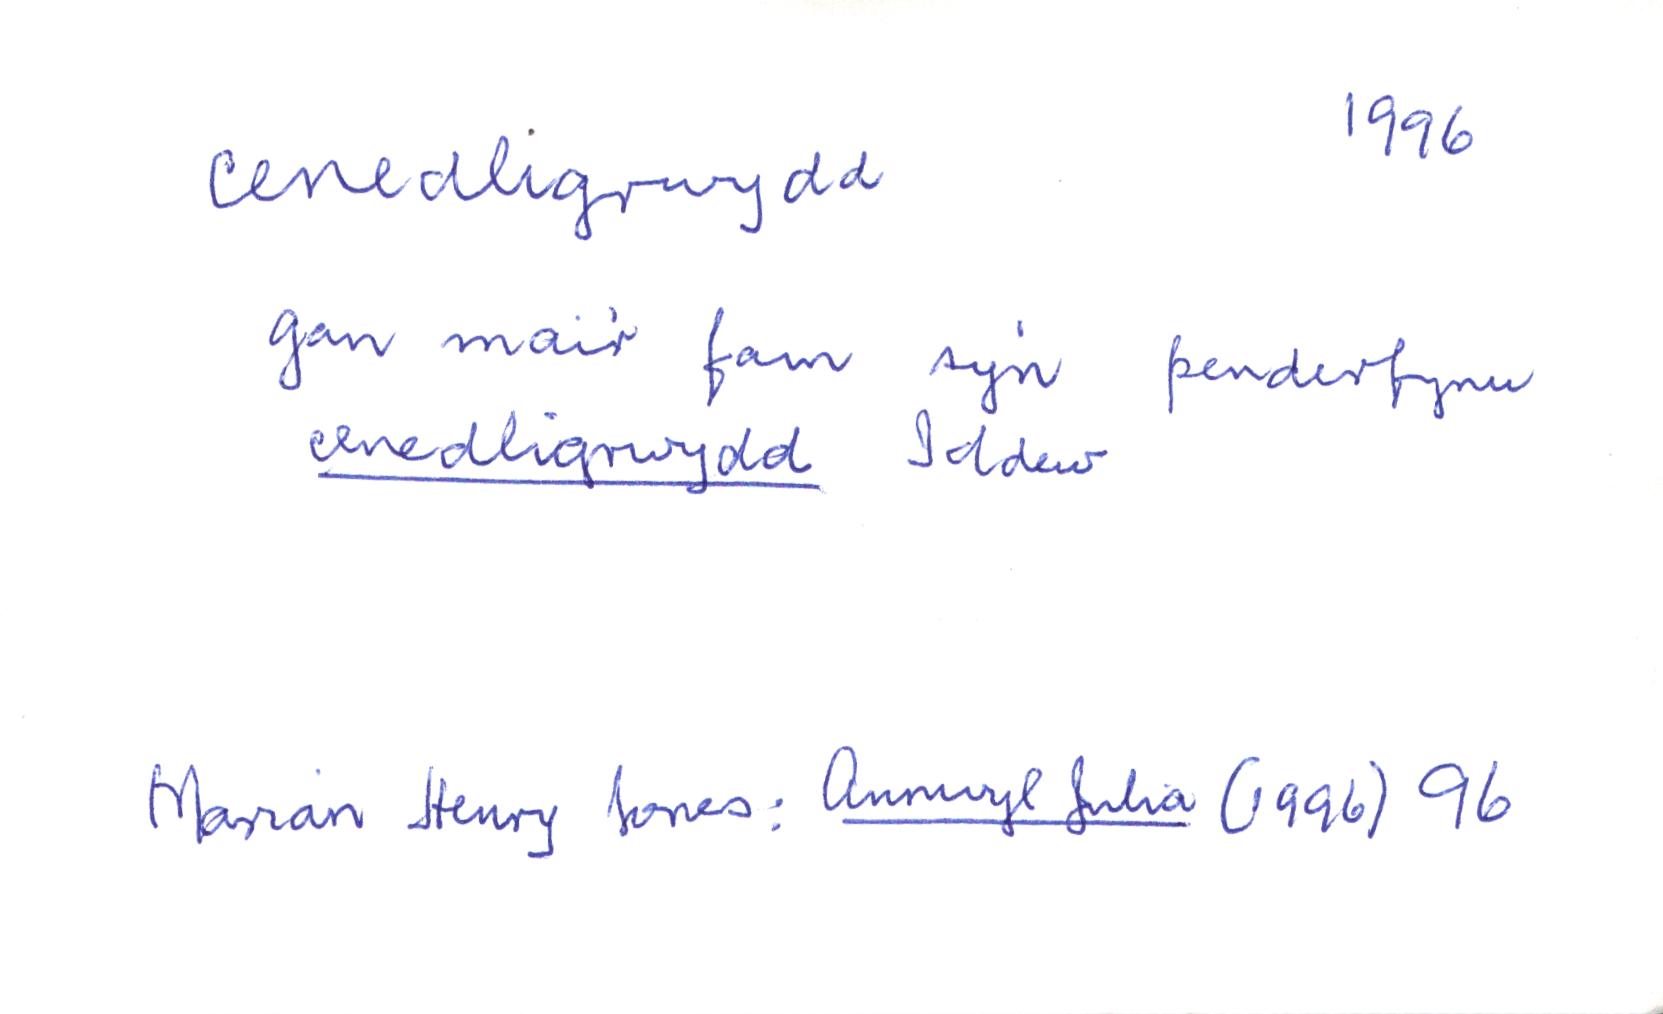 cenedligrwydd 1996
gan mai'r fam sy'n penderfynu
cenedligrwydd Iddew
Marian Henry Jones: Annwyl Julia (1996) 96